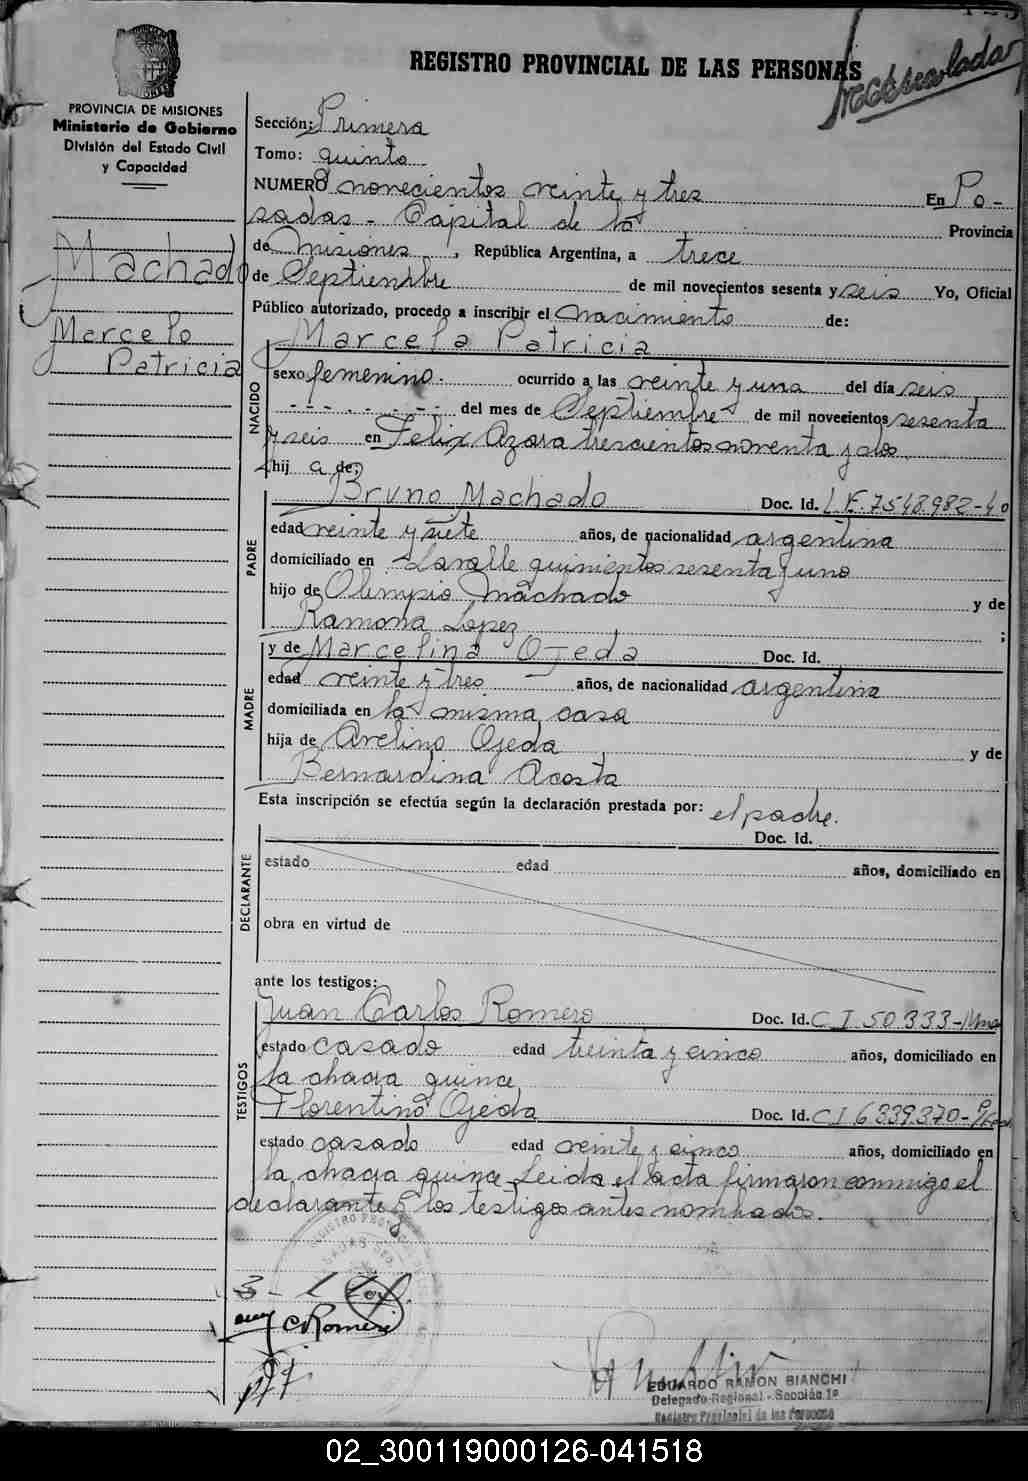 REGISTRO PROVINCIAL DE LAS PERSONAS
PROVINCIA DE MISIONES
Ministerio de Gobierno
División del Estado Civil
y Capacidad
Machado
Marcela
Patricia
Sección: Primera
Tomo: quinto
NUMERO novecientos veinte y tres En Po-
sadas - Capital de la Provincia
de Misiones, República Argentina, a trece
de Septiembre de mil novecientos sesenta y seis Yo, Oficial
Público autorizado, procedo a inscribir el nacimiento de:
NACIDO
Marcela Patricia
sexo femenino. ocurrido a las veinte y una del día seis
del mes de Septiembre de mil novecientos sesenta
y seis en Felix Azara trescientos noventa y dos
hija de:
PADRE
Bruno Machado Doc. Id. L.E. 7548.982-
edad veinte y siete años, de nacionalidad argentina
domiciliado en Lavalle quinientos sesenta y uno
hijo de Olimpio Machado y de
Ramona Lopez ;
MADRE
y de Marcelina Ojeda Doc. Id.
edad veinte y tres años, de nacionalidad argentina
domiciliada en la misma casa
hija de Avelino Ojeda y de
Bernardina Acosta
Esta inscripción se efectúa según la declaración prestada por: el padre.
DECLARANTE
Doc. Id.
estado edad años, domiciliado en
obra en virtud de
ante los testigos:
TESTIGOS
Juan Carlos Romero Doc. Id. C I 50.333-Mnes
estado casado edad treinta y cinco años, domiciliado en
la chacra quince
Florentino Ojeda Doc. Id. C I 6.339.370-
estado casado edad veinte y cinco años, domiciliado en
la chacra quince Leida el acta firmaron conmigo el
declarante y los testigos antes nombrados.
C Romero
EDUARDO RAMON BIANCHI
Delegado Regional - Sección 1ª
Registro Provincial de las Personas
02_300119000126-041518